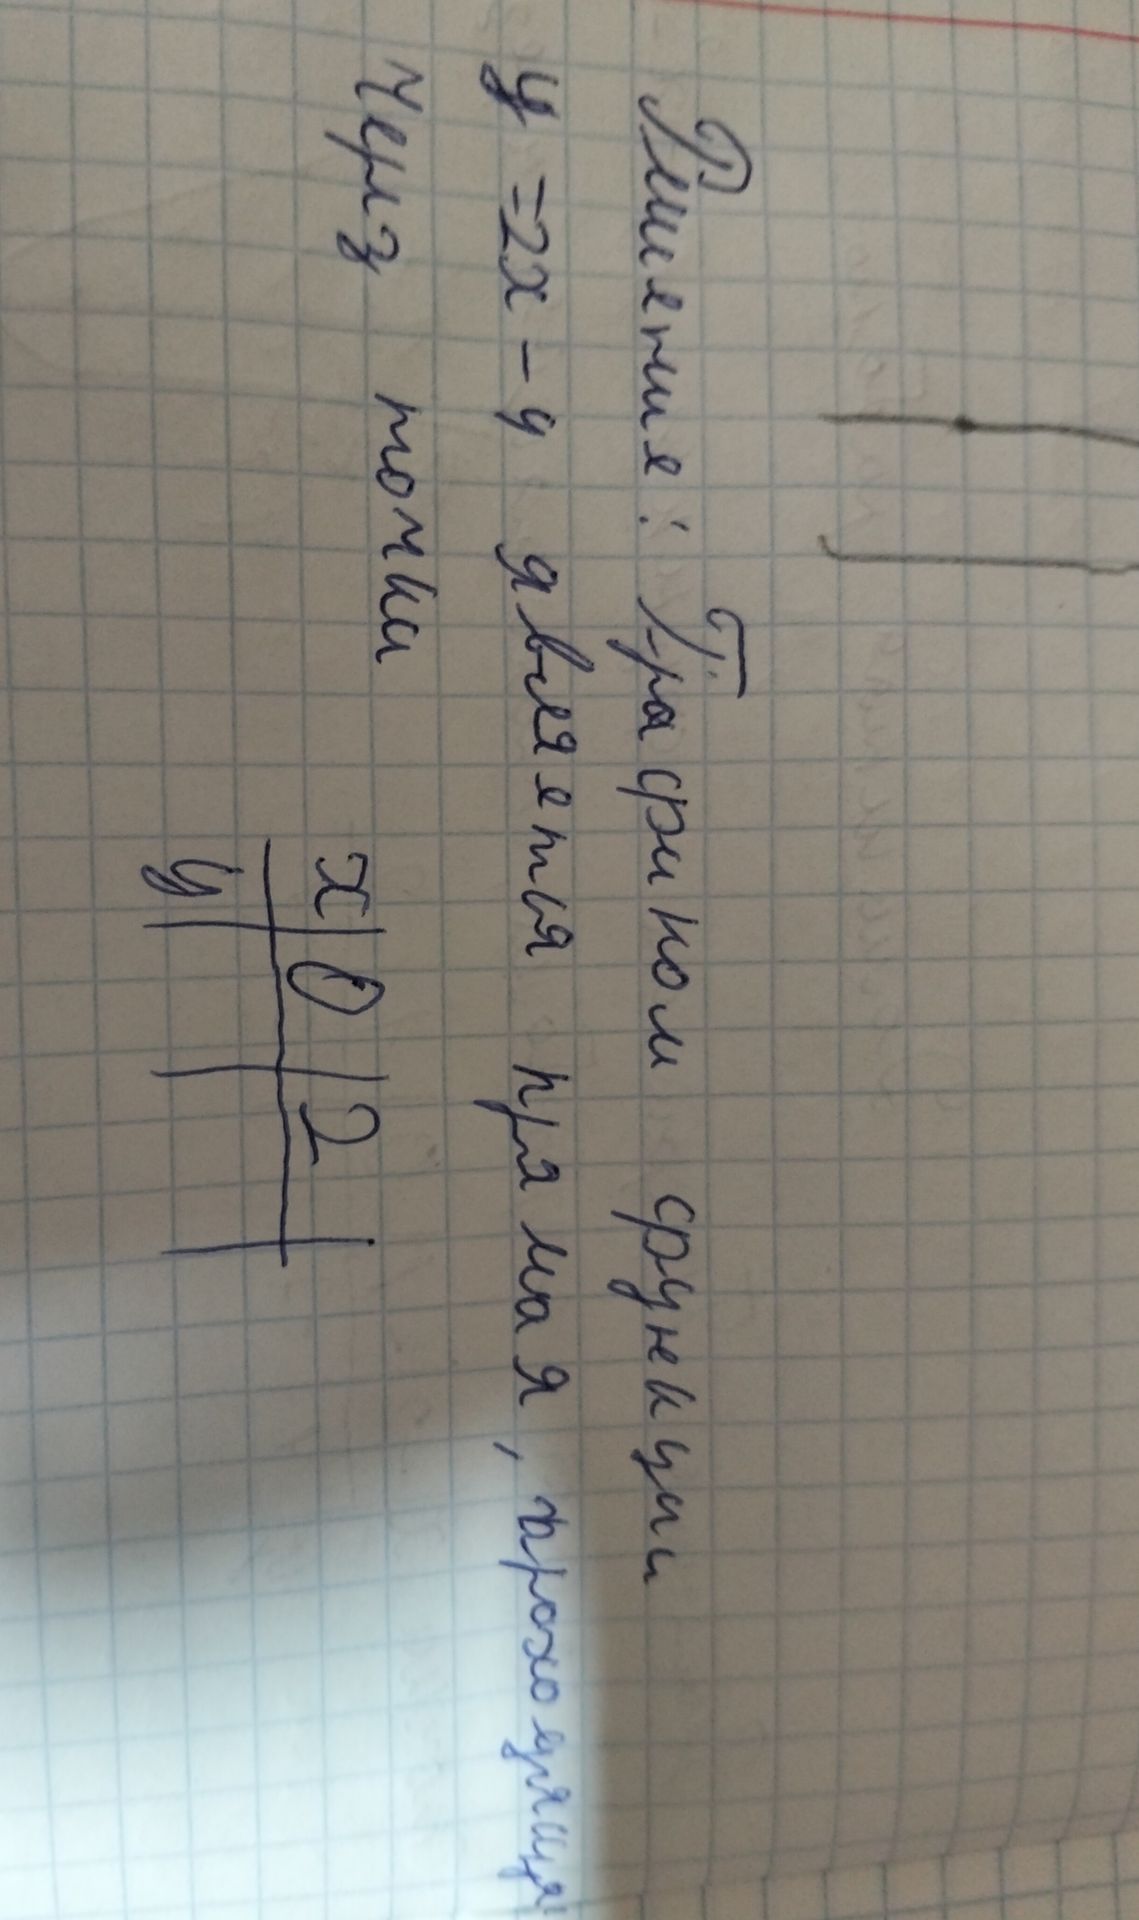 Решение: Графиком функции
y = 2x - 4 является прямая, проходящая
Через точки
x 0 2
y